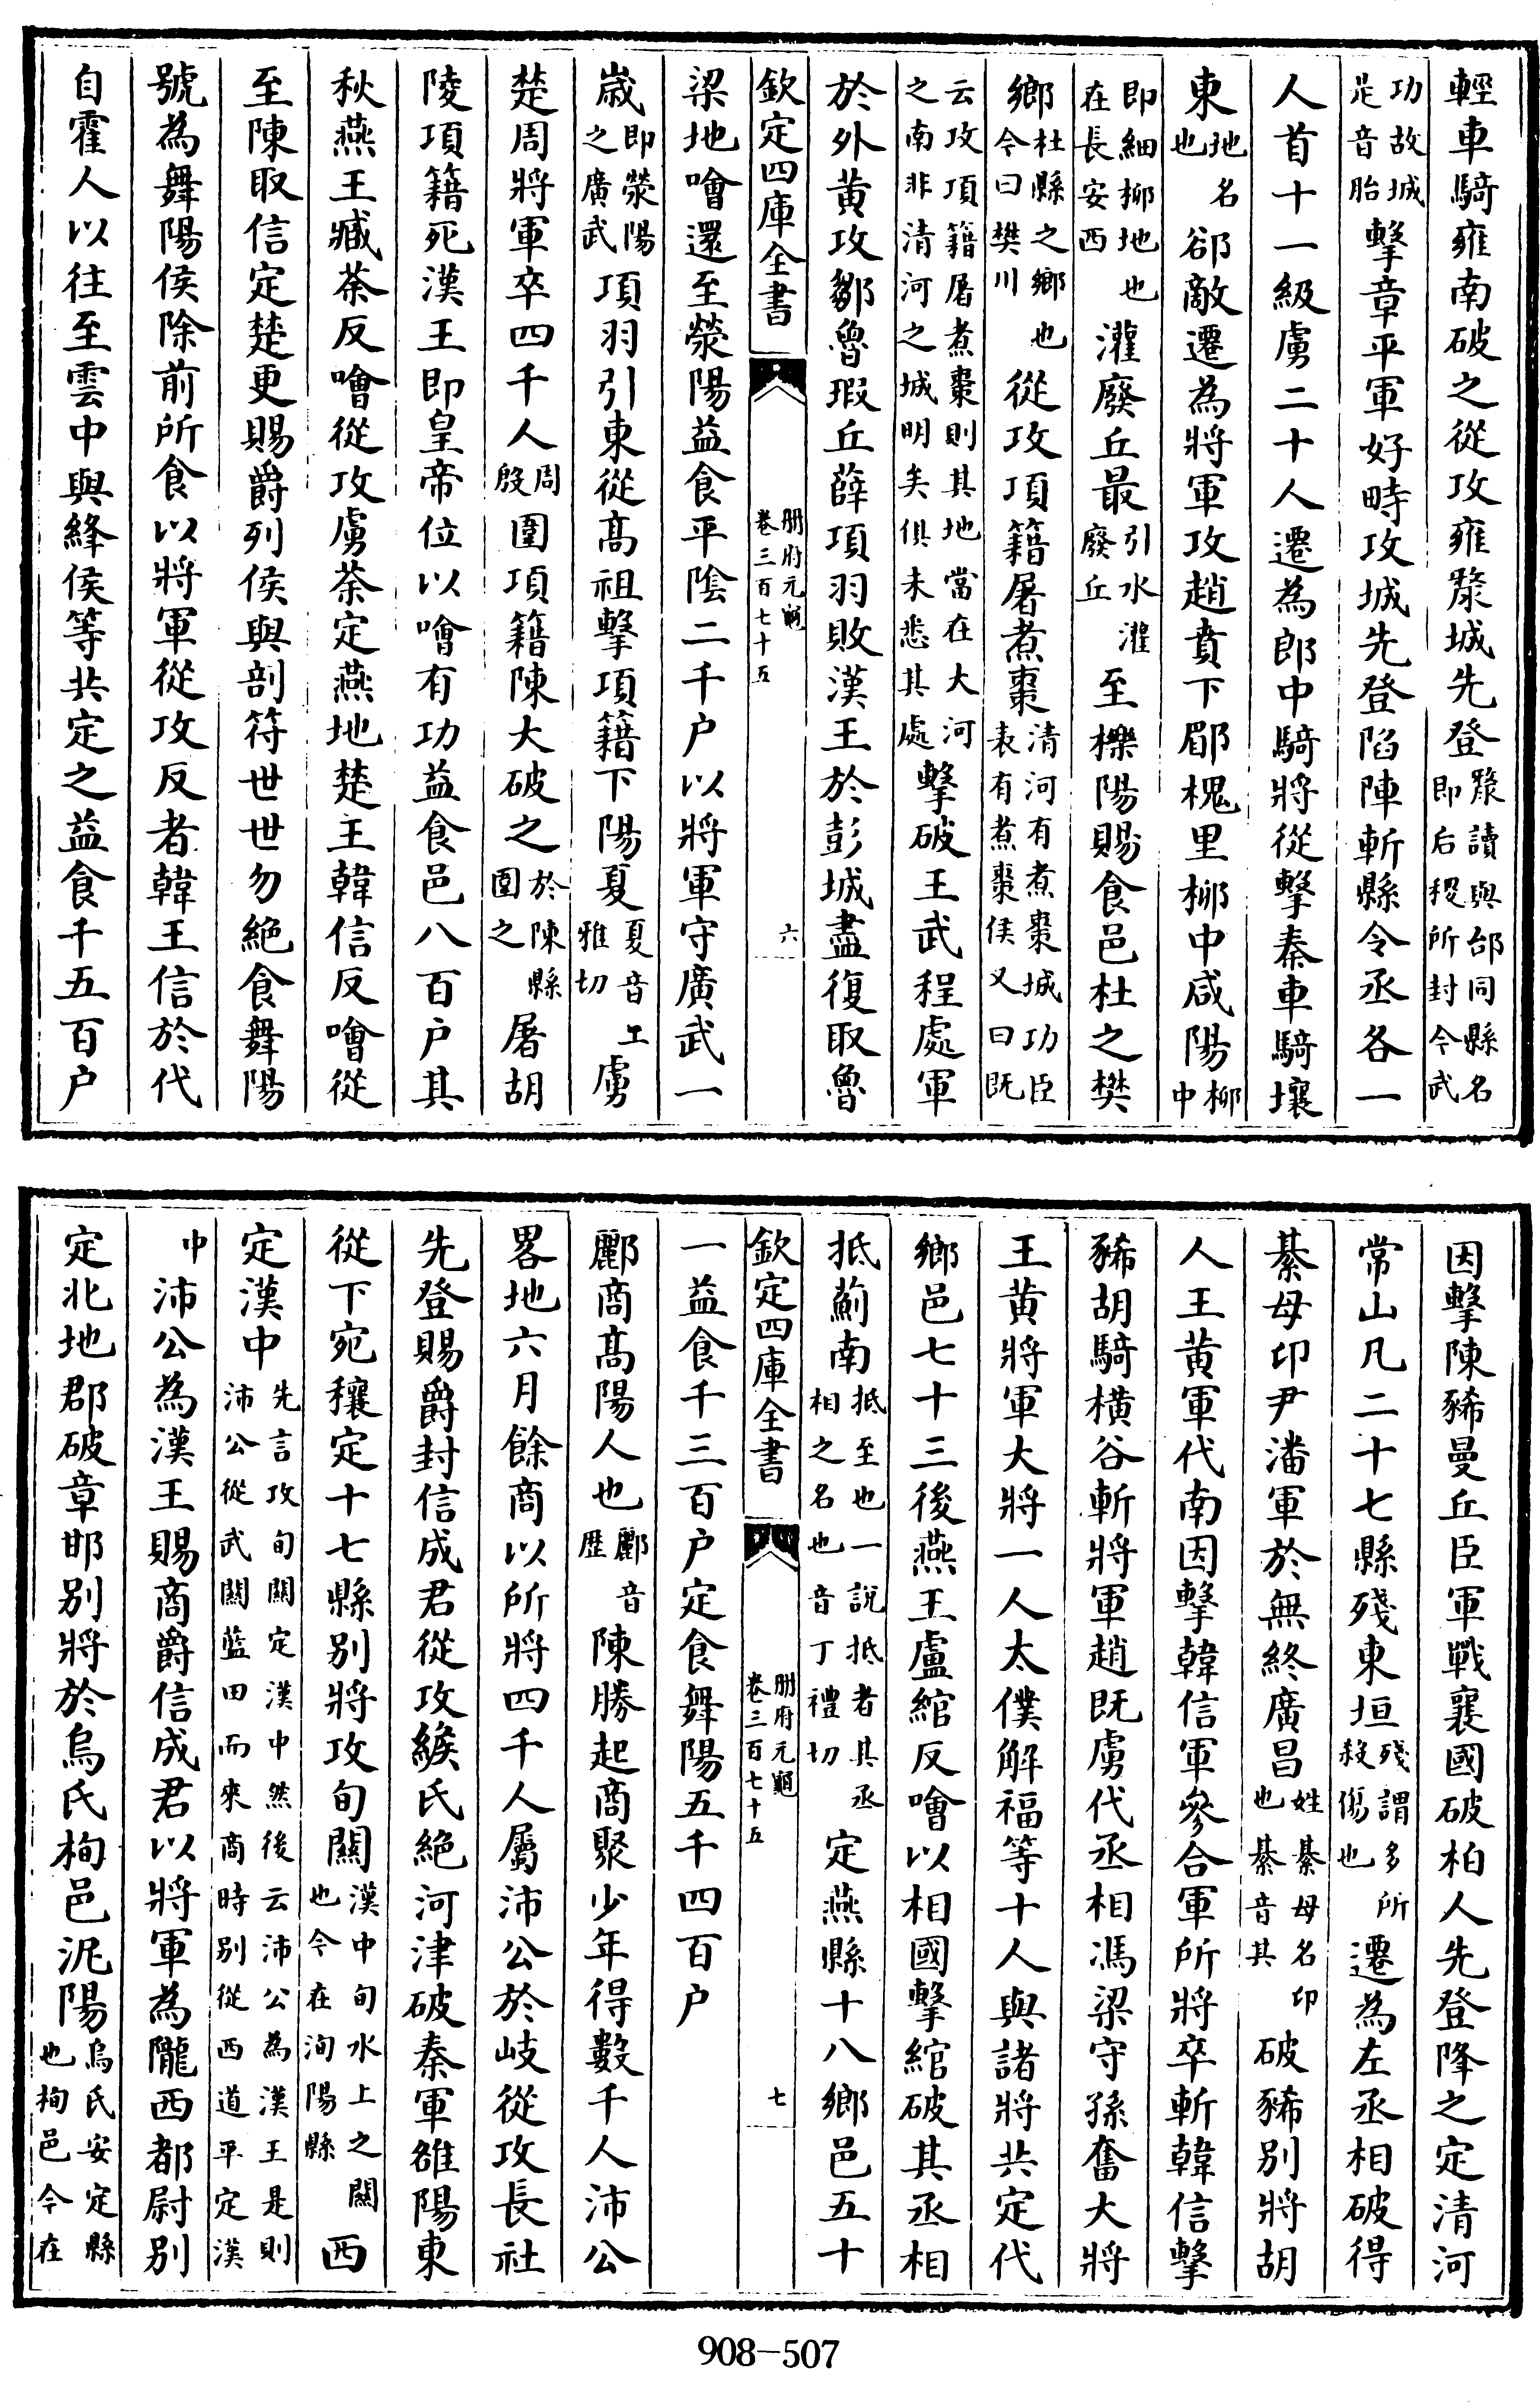 輕車騎雍南破之從攻雍斄城先登斄讀與邰同縣名即后稷所封今武
功故城是音胎擊章平軍好畤攻城先登陷陣斬縣令丞各一
人首十一級虜二十人遷為郎中騎將從擊秦車騎壤
東地名也郤敵遷為將軍攻趙賁下郿槐里柳中咸陽柳中
即細柳地也在長安西灌廢丘最引水灌廢丘至櫟陽賜食邑杜之樊
鄉杜縣之鄉也今曰樊川從攻項籍屠煮棗清河有煮棗城功臣表有煮棗侯又曰既
云攻項籍屠煮棗則其地當在大河之南非清河之城明矣俱未悉其處擊破王武程處軍
於外黄攻鄒魯瑕丘薛項羽敗漢王於彭城盡復取魯
欽定四庫全書 冊府元龜卷三百七十五 六
梁地噲還至滎陽益食平陰二千户以將軍守廣武一
歲即滎陽之廣武項羽引東從髙祖擊項籍下陽夏夏音工雅切虜
楚周將軍卒四千人周殷圍項籍陳大破之於陳縣圍之屠胡
陵項籍死漢王即皇帝位以噲有功益食邑八百户其
秋燕王臧荼反噲從攻虜荼定燕地楚王韓信反噲從
至陳取信定楚更賜爵列侯與剖符世世勿絶食舞陽
號為舞陽侯除前所食以將軍從攻反者韓王信於代
自霍人以往至雲中與絳侯等共定之益食千五百户
因擊陳豨曼丘臣軍戰襄國破柏人先登降之定清河
常山凡二十七縣殘東垣殘謂多所殺傷也遷為左丞相破得
綦母卬尹潘軍於無終廣昌姓綦母名卬也綦音其破豨别將胡
人王黄軍代南因擊韓信軍參合軍所將卒斬韓信擊
豨胡騎横谷斬將軍趙既虜代丞相馮梁守孫奮大將
王黄將軍大將一人太僕解福等十人與諸將共定代
鄉邑七十三後燕王盧綰反噲以相國擊綰破其丞相
抵薊南抵至也一説抵者其丞相之名也音丁禮切定燕縣十八鄉邑五十
欽定四庫全書 冊府元龜卷三百七十五 七
一益食千三百户定食舞陽五千四百户
酈商髙陽人也酈音歴陳勝起商聚少年得數千人沛公
畧地六月餘商以所將四千人屬沛公於岐從攻長社
先登賜爵封信成君從攻緱氏絶河津破秦軍雒陽東
從下宛穰定十七縣别將攻旬關漢中旬水上之關也今在洵陽縣西
定漢中先言攻旬關定漢中然後云沛公為漢王是則沛公從武關藍田而來商時别從西道平定漢
中沛公為漢王賜商爵信成君以將軍為隴西都尉别
定北地郡破章邯别將於烏氏栒邑泥陽烏氏安定縣也栒邑今在
908-507